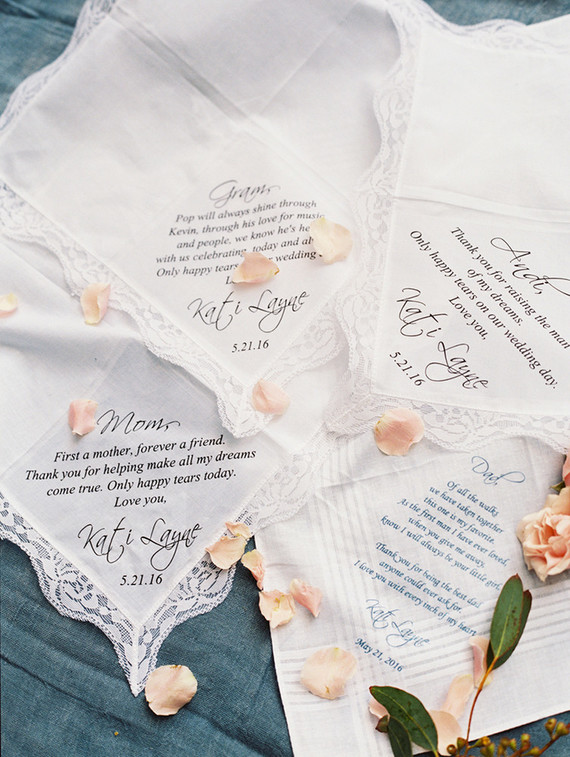 Gram,
Pop will always shine through
Kevin, through his love for music
and people, we know he's he
with us celebrating, today and al
Only happy tears wedding
Kati Layne
5.21.16
Andi,
Thank you for raising the man
of my dreams.
Only happy tears on our wedding day.
Love you,
Kati Layne
5.21.16
Mom,
First a mother, forever a friend.
Thank you for helping make all my dreams
come true. Only happy tears today.
Love you,
Kati Layne
5.21.16
Dad,
Of all the walks
we have taken together
this one is my favorite.
As the first man I have ever loved,
when you give me away,
know I will always be your little girl.
Thank you for being the best dad
anyone could ever ask for.
I love you with every inch of my heart.
Kati Layne
May 21, 2016